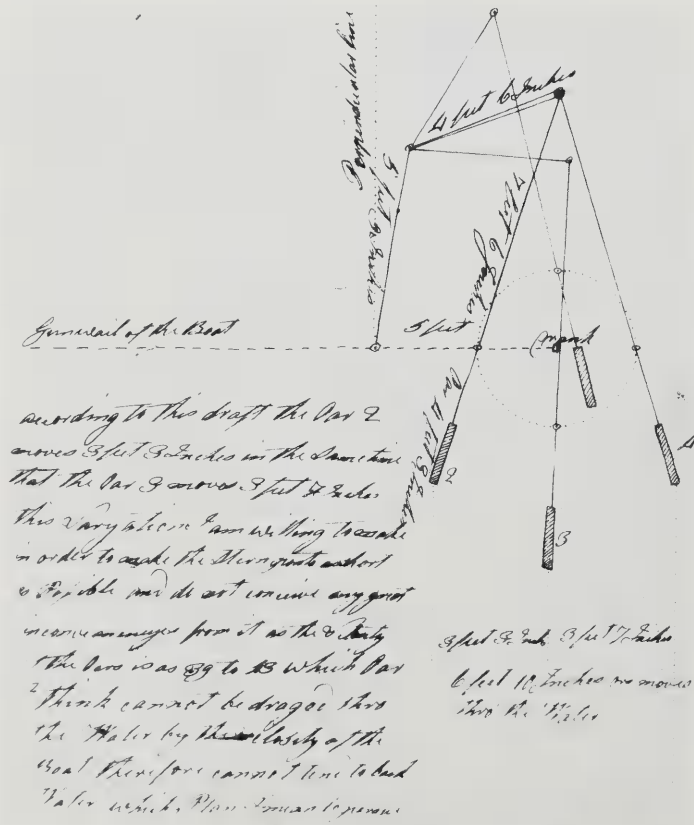 Perpendicular line
4 feet 6 Inches
5 feet 3 Inches
7 feet 6 Inches
Gunwail of the Boat
5 feet
Oar 4 feet 3 Inches
2
3
4
according to this draft the Oar 2
moves 3 feet 3 Inches in the Same time
that the Oar 3 moves 3 feet 7 Inches
this Varyation I am willing to make
in order to make the Sternposts as short
as Posible and do not conceive any great
from it as the
the Oars is as 39 to 43 which Oar
2 I think cannot be draged thro
the Water by the velosity of the
Boat therefore cannot tend to back
Water which Plan I mean to
3 feet 3 Inch 3 feet 7 Inches
6 feet 10 Inches moves
thro the Water